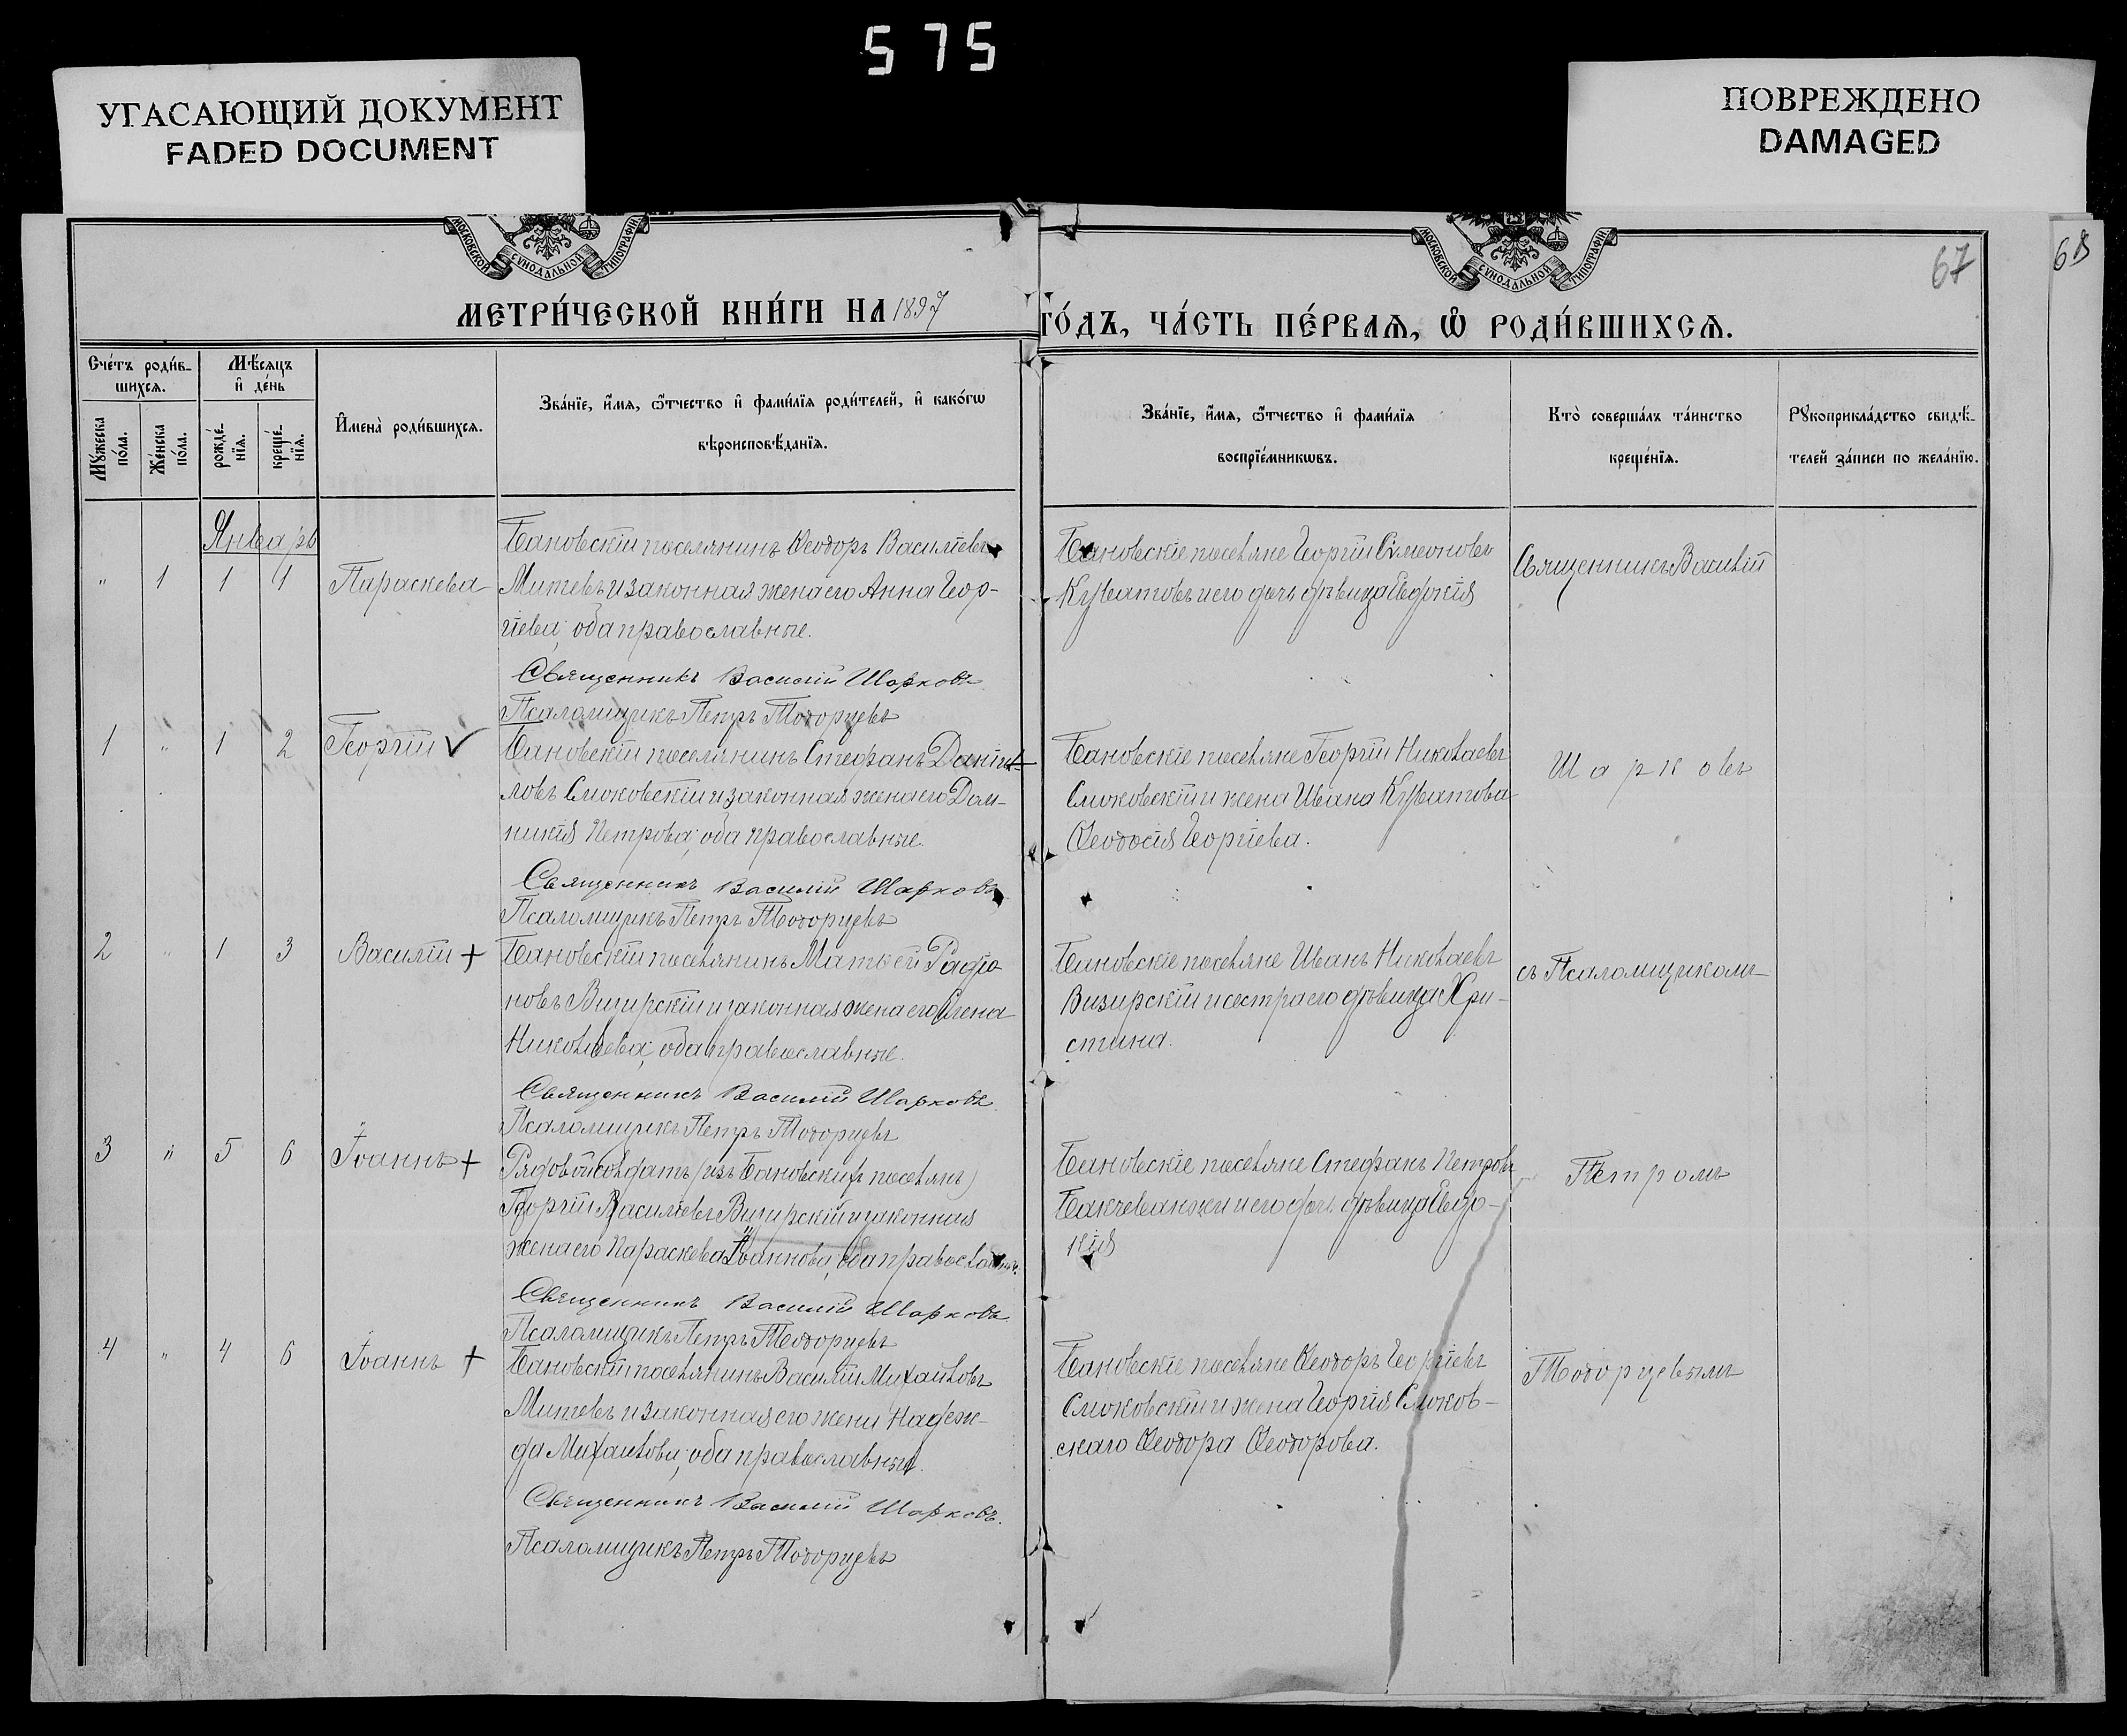 575
УГАСАЮЩИЙ ДОКУМЕНТ
FADED DOCUMENT
ПОВРЕЖДЕНО
DAMAGED
МОСКОВСКОЙ СѴНОДАЛЬНОЙ ТИПОГРАФІИ.
МОСКОВСКОЙ СѴНОДАЛЬНОЙ ТИПОГРАФІИ.
67
68
МЕТРИ́ЧЕСКОЙ КНИ́ГИ НА 1897
ГО́ДЪ, ЧА́СТЬ ПЕ́РВАѦ, Ѽ РОДИ́ВШИХСѦ.
Сче́тъ роди́в-
шихсѧ.
Мѣ́сѧцъ
и҆ де́нь
Мꙋ́жеска
по́ла.
Же́нска
по́ла.
рожде́-
нїѧ.
креще́-
нїѧ.
И҆мена̀ роди́вшихсѧ.
Зва́нїе, и҆́мѧ, ѻ҆́тчество и҆ фами́лїѧ роди́телей, и҆ како́гѡ
вѣроисповѣ́данїѧ.
Зва́нїе, и҆́мѧ, ѻ҆́тчество и҆ фами́лїѧ
воспрїе́мникѡвъ.
Кто̀ соверша́лъ та́инство
креще́нїѧ.
Рꙋкоприкла́дство свидѣ́-
телей за́писи по жела́нїю.
Январь
" 1 1 1 Параскева
Бановскій поселянинъ Ѳеодоръ Василіевъ
Митевъ и законная жена его Анна Геор-
гіева; оба православные.
Священникъ Василій Шарковъ
Псаломщикъ Петръ Тодорцевъ
Бановскіе поселяне Георгій Симеоновъ
и его дочь дѣвица Евдокія
Священникъ Василій
1 " 1 2 Георгій
Бановскій поселянинъ Стефанъ Даніи-
ловъ Слюковскій и законная жена его Дом-
никія Петрова; оба православные.
Священникъ Василій Шарковъ
Псаломщикъ Петръ Тодорцевъ
Бановскіе поселяне Георгій Николаевъ
Слюковскій и жена Ивана
Ѳеодосія Георгіева.
Шарковъ
2 " 1 3 Василій +
Бановскій поселянинъ Матѳей Радіо-
новъ Визирскій и законная жена его Елена
Николаева; оба православные.
Священникъ Василій Шарковъ
Псаломщикъ Петръ Тодорцевъ
Бановскіе поселяне Иванъ Николаевъ
Визирскій и сестра его дѣвица Хри-
стина.
съ Псаломщикомъ
3 " 5 6 Іоаннъ +
Рядовой солдатъ (изъ Бановскихъ поселянъ)
Георгій Василіевъ Визирскій и законная
жена его Параскева Іоаннова; оба православные.
Священникъ Василій Шарковъ
Псаломщикъ Петръ Тодорцевъ
Бановскіе поселяне Стефанъ Петровъ
и его дочь дѣвица Евдо-
кія
Петромъ
4 " 4 6 Іоаннъ +
Бановскій поселянинъ Василій Михаиловъ
Митевъ и законная его жена Надеж-
да Михаилова; оба православные.
Священникъ Василій Шарковъ.
Псаломщикъ Петръ Тодорцевъ
Бановскіе поселяне Ѳеодоръ Георгіевъ
Слюковскій и жена Георгія Слюков-
скаго Ѳеодора Ѳеодорова.
Тодорцевымъ